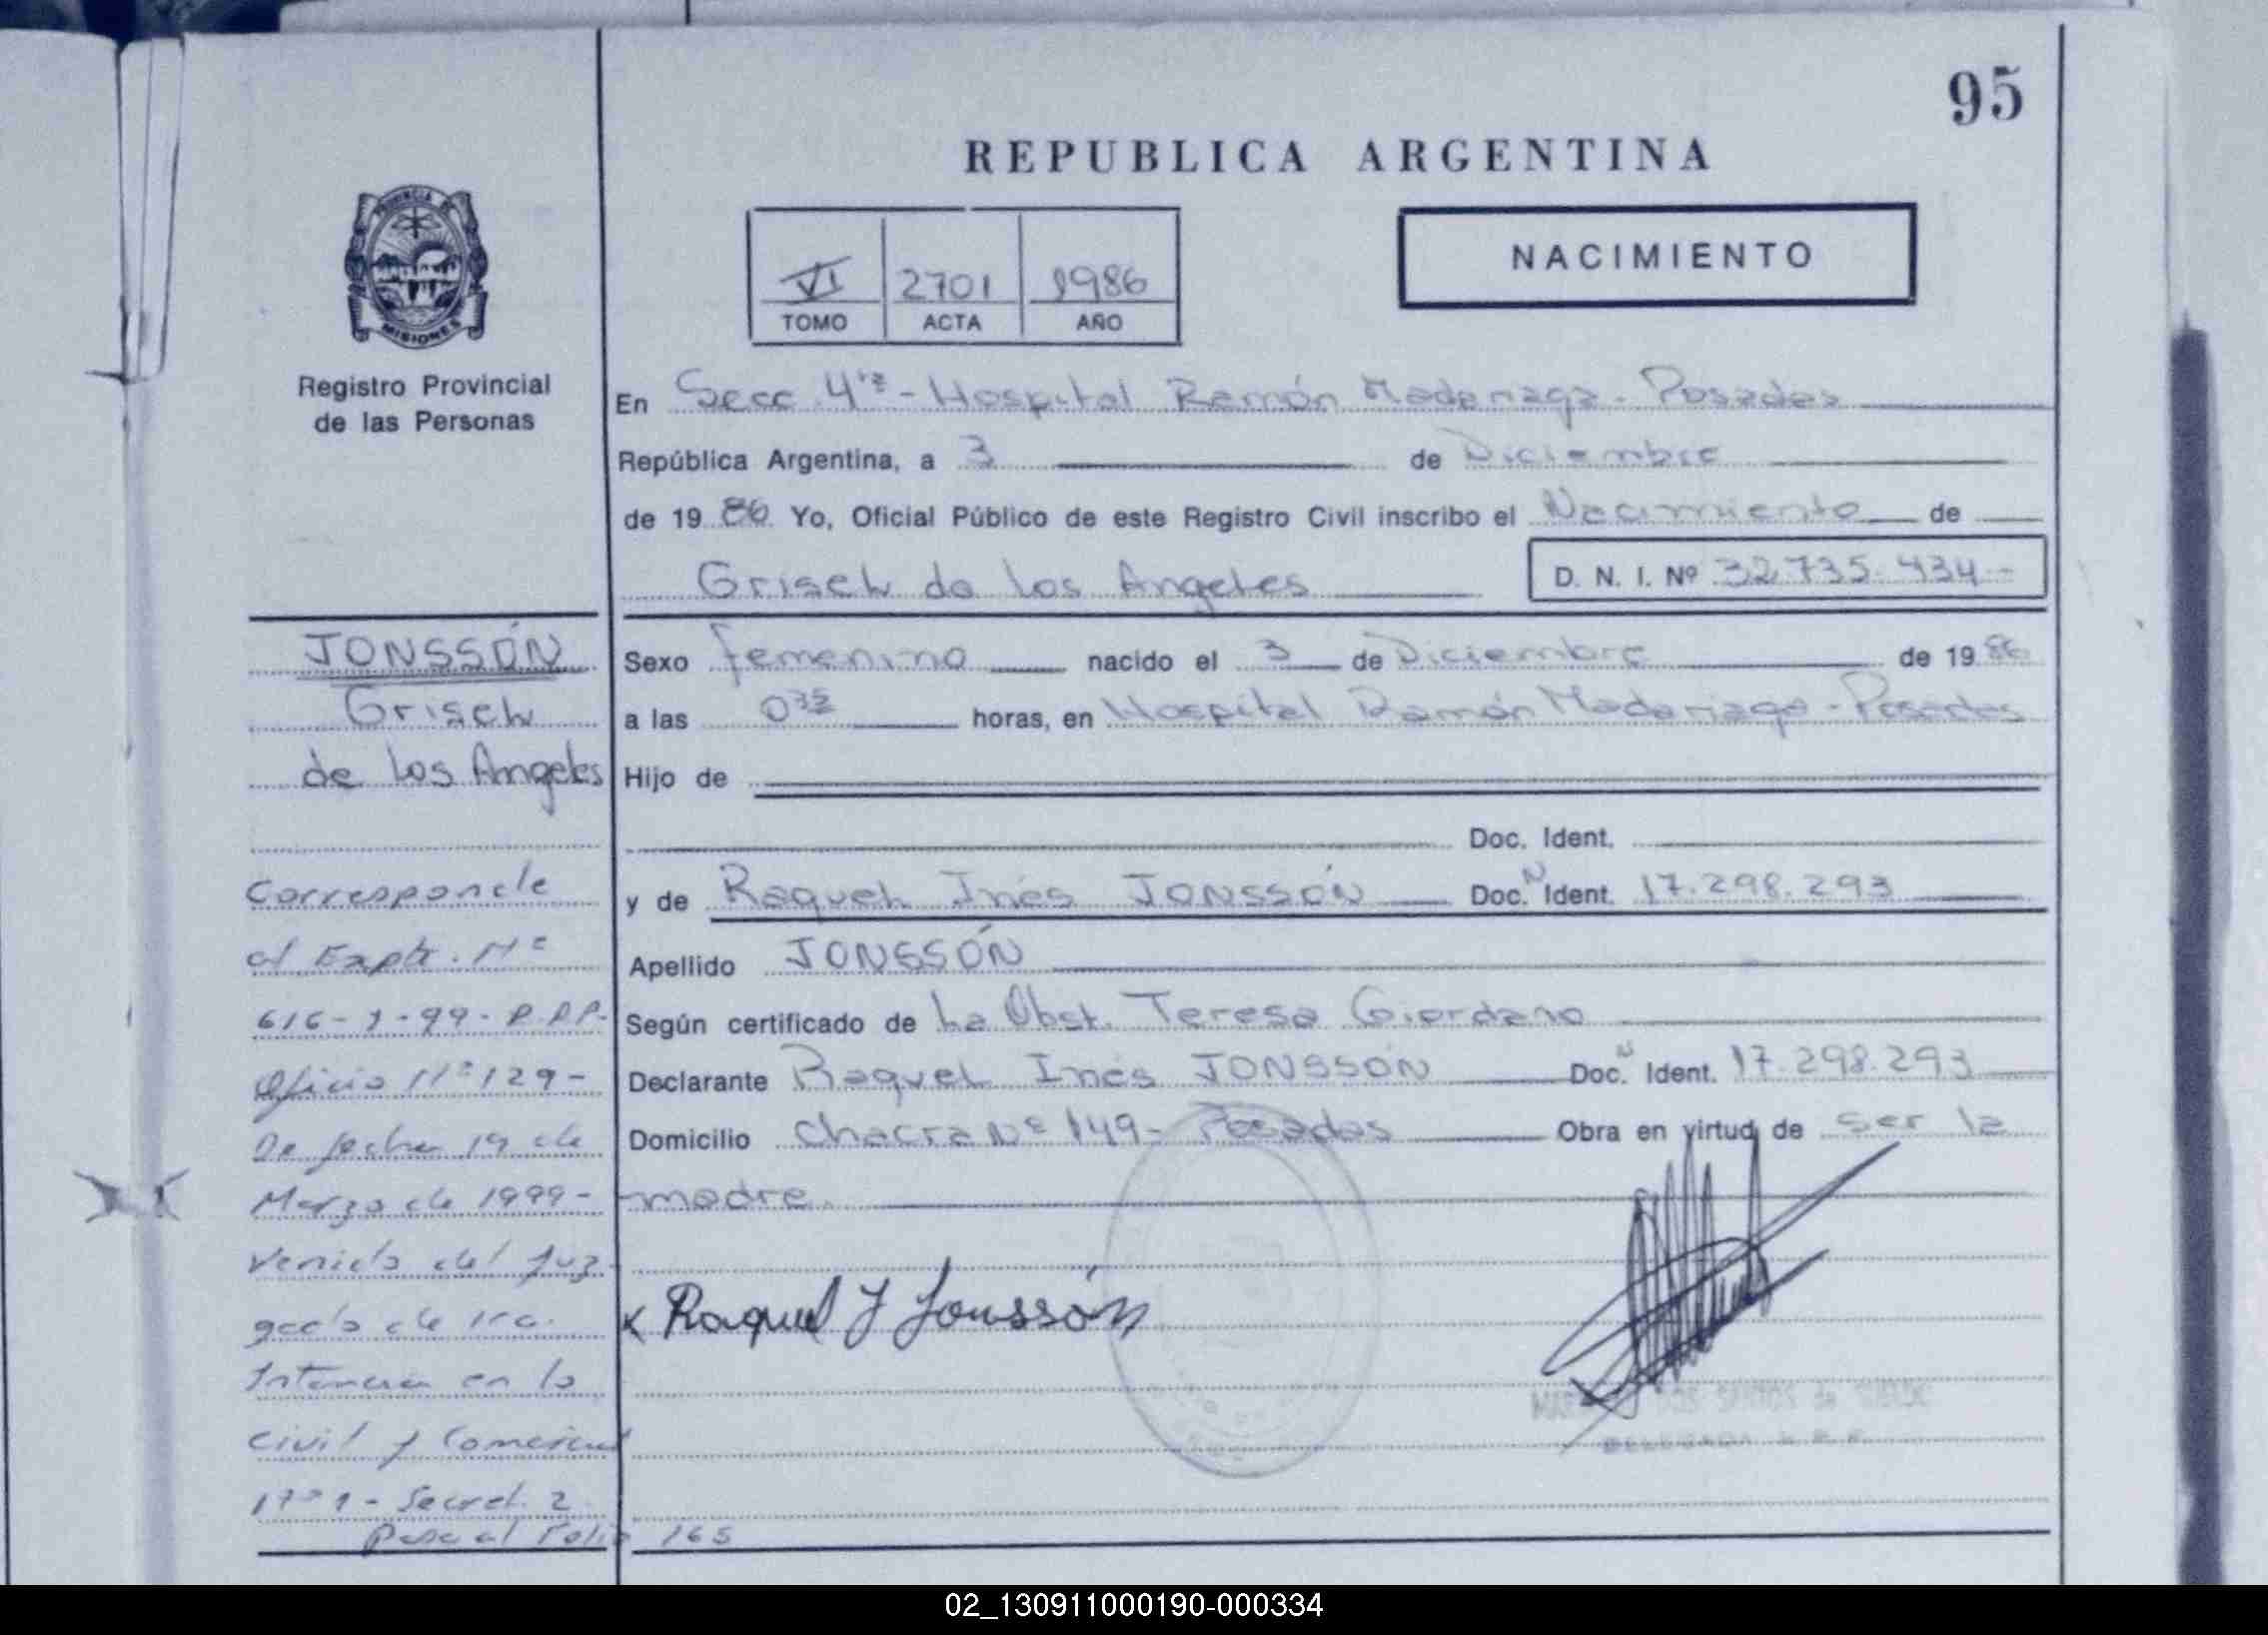 95
REPUBLICA ARGENTINA
PROVINCIA DE
MISIONES
Registro Provincial
de las Personas
VI 2701 1986
TOMO ACTA AÑO
NACIMIENTO
En Secc 4ta - Hospital Ramón Madariaga - Posadas
República Argentina, a 3 de Diciembre
de 1986 Yo, Oficial Público de este Registro Civil inscribo el Nacimiento de
Grisel de los Angeles D. N. I. Nº 32.735.434-
JONSSÓN
Grisel
de los Angeles
Sexo femenino nacido el 3 de Diciembre de 1986
a las horas, en Hospital Ramón Madariaga - Posadas
Hijo de
Doc. Ident.
y de Raquel Inés JONSSÓN Doc. N Ident. 17.298.293
Apellido JONSSÓN
Según certificado de La Obst. Teresa Giordano
Declarante Raquel Inés JONSSÓN Doc. N Ident. 17.298.293
Domicilio Chacra Nº 149 - Posadas Obra en virtud de ser la
madre
x Raquel I Jonssón
DOS SANTOS de
DELEGADA
Corresponde
al Expte. Nº
616-J-99-R.P.P.-
Oficio Nº 129-
De fecha 19 de
Marzo de 1999-
Venido del Juz
gado de 1ra.
Intancia en lo
Civil y Comercial
Nº 1 - Secret. 2
Pasa al Folio 165
02_130911000190-000334